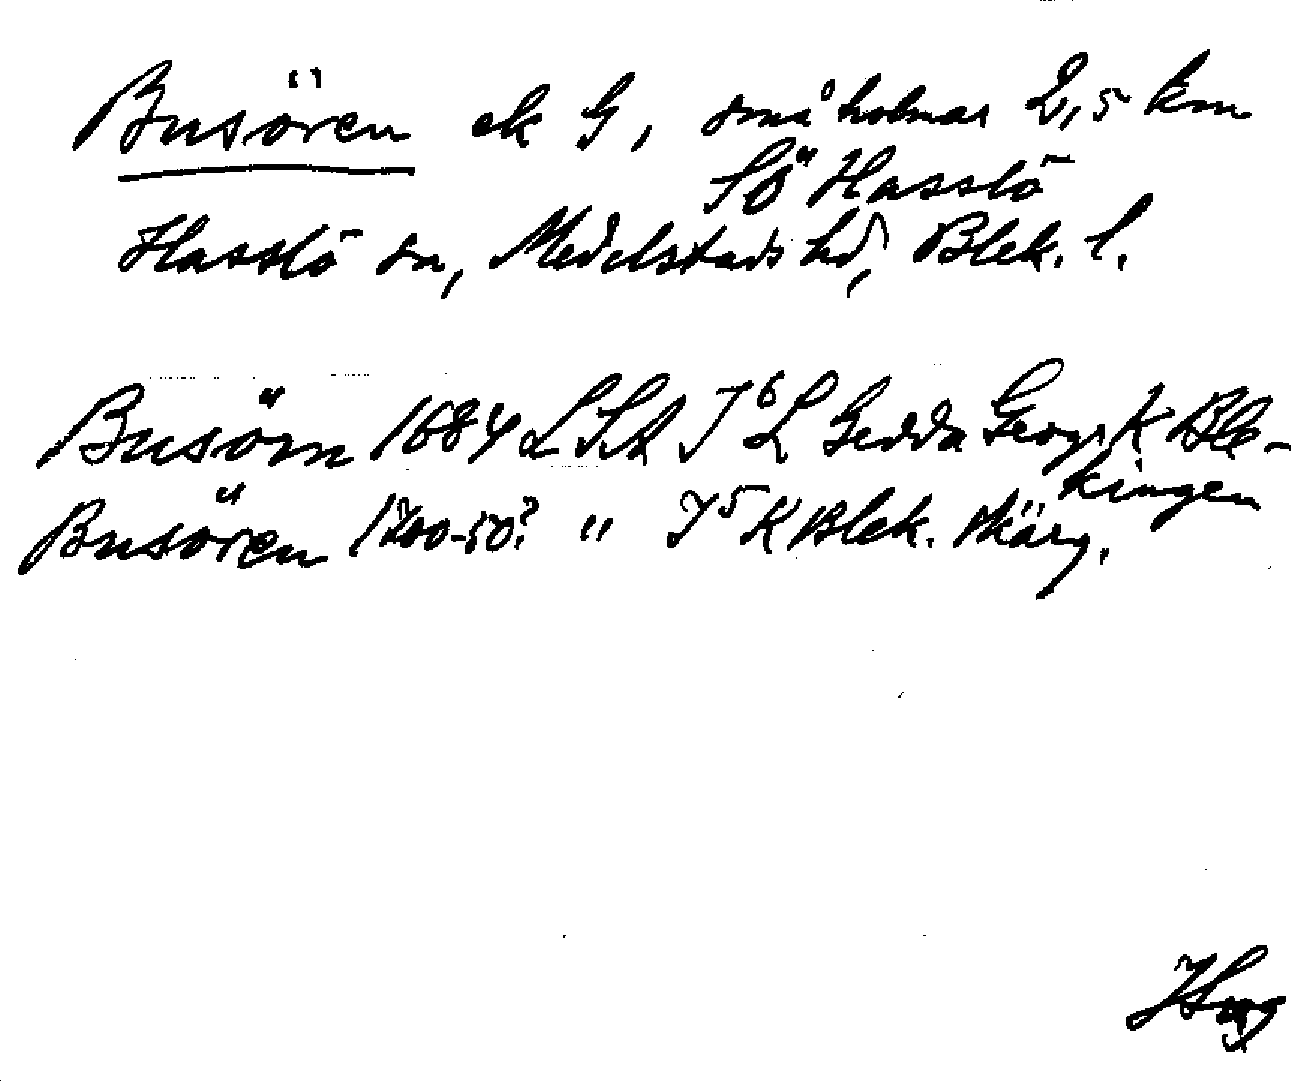 Busören ek G, små holmar 2,5 km
SÖ Hasslö
Hasslö sn, Medelstads hd, Blek. l.
Busörn 1684 LSA J6 L Gedda Geogr K Ble-
kingen
Busören 1700-50? " J5 K Blek. skärg.